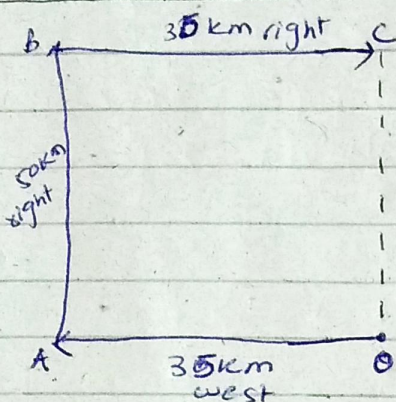 B 35 km right C
50km
right
A 35km O
west